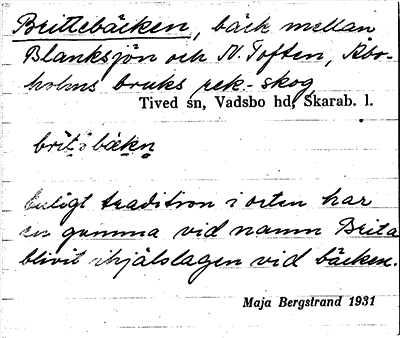 Brittebäcken, bäck mellan
Blanksjön och N. Toften, Åbo-
holms bruks rek-skog,
Tived sn, Vadsbo hd, Skarab. l.
Enligt tradition i orten har
en gumma vid namn Brita
blivit ihjälslagen vid bäcken.
Maja Bergstrand 1931